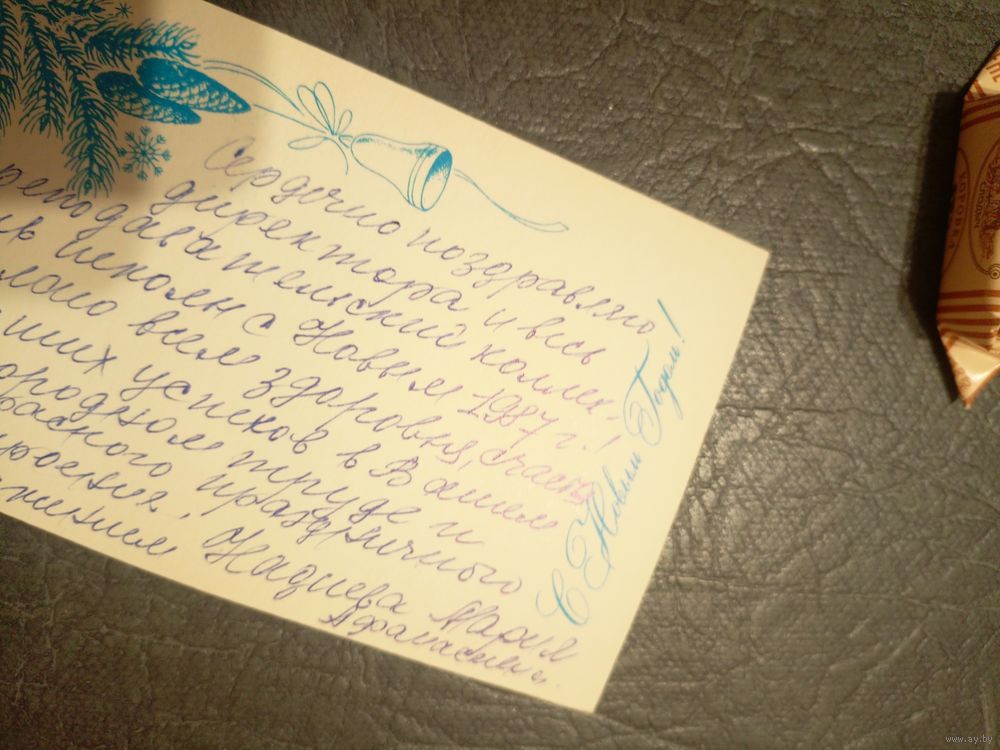 Сердечно поздравляю
директора и весь
реподавательский коллек-
ив школы с Новым 1987 г.!
лаю всем здоровья, счастья,
ших успехов в Вашем
ородном труде и
расного праздничного
роения.
жением Надиева Мария
Афанасьевна.
С Новым Годом!
www.ay.by